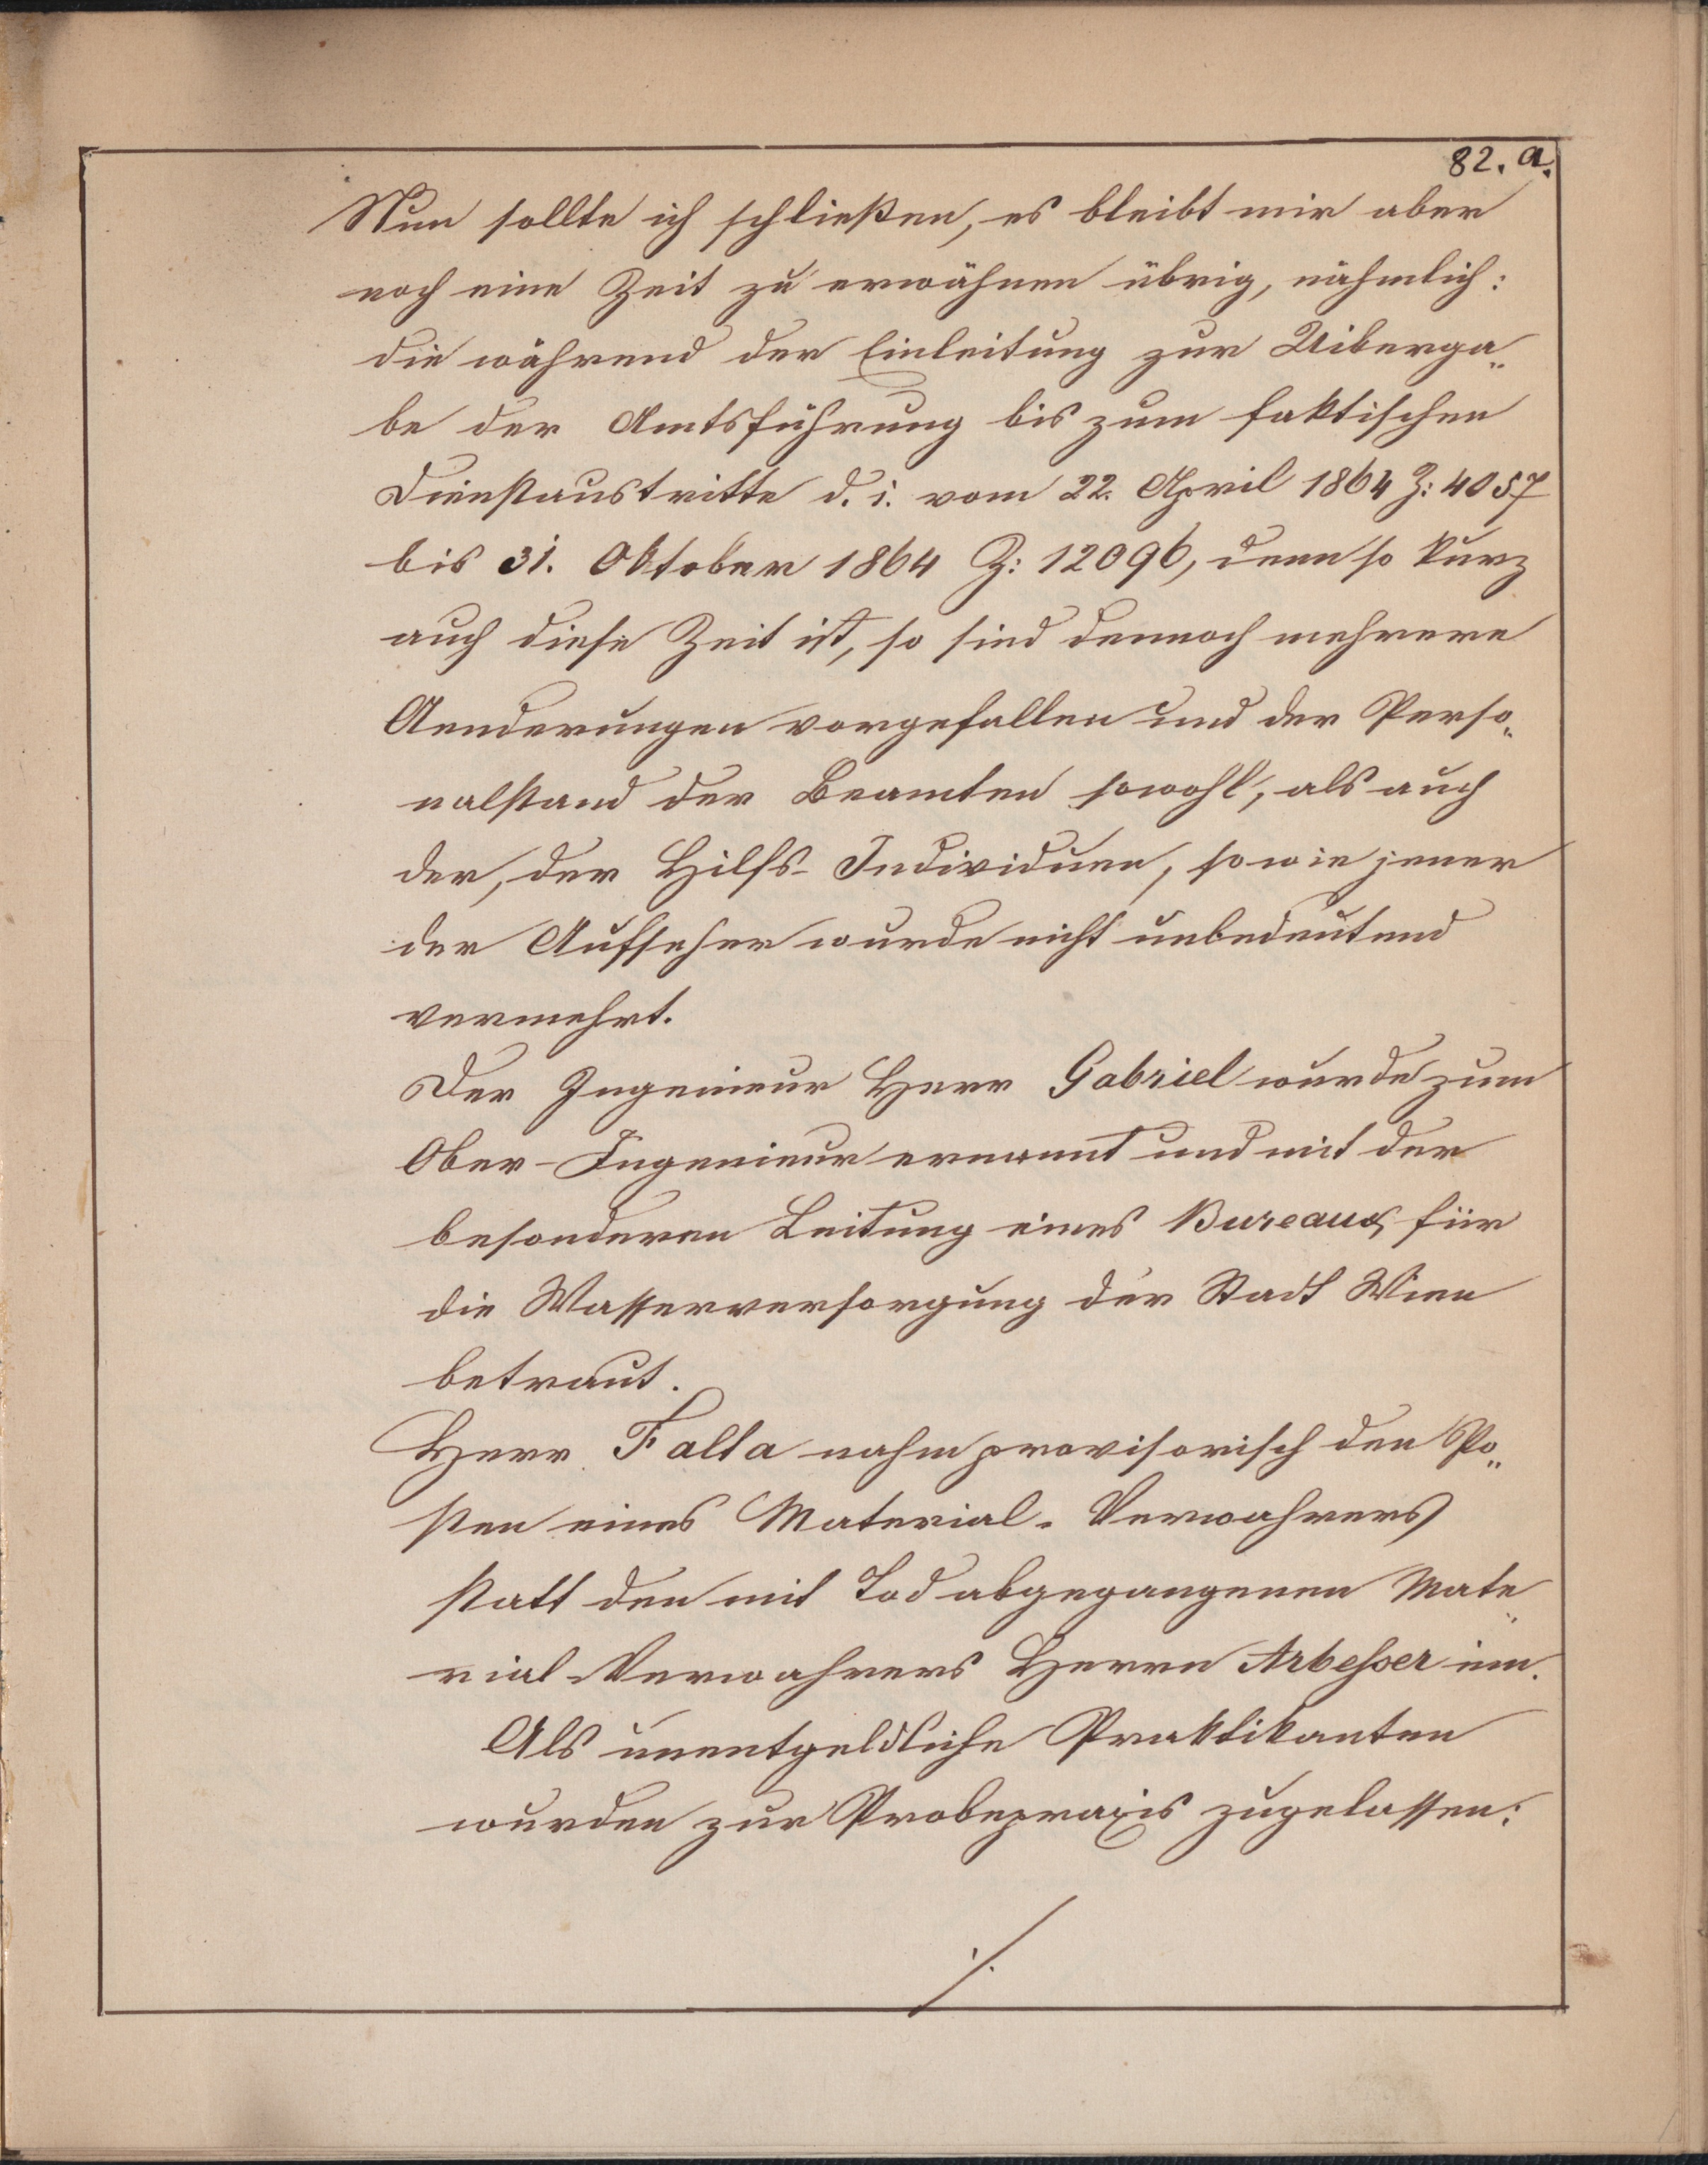 82. a.
Nun sollte ich schließen, es bleibt mir aber
noch eine Zeit zu erwähnen übrig, nähmlich:
die während der Einleitung zur Uiberga„
be der Amtsführung bis zum faktischen
Dienstaustritte d. i. vom 22. April 1864 Z: 4057
bis 31. Oktober 1864 Z: 12096, denn so kurz
auch diese Zeit ist, so sind dennoch mehrere
Aenderungen vorgefallen und der Perso„
nalstand der Beamten sowohl, als auch
der, der Hilfs-Individuen, sowie jener
der Aufseher wurde nicht unbedeutend
vermehrt.
Der Ingenieur Herr Gabriel wurde zum
Ober-Ingenieur ernannt und mit der
besonderen Leitung eines Bureaus für
die Wasserversorgung der Stadt Wien
betraut.
Herr Falta nahm provisorisch den Po„
sten eines Material-Verwahrers
statt den mit Tod abgegangenen Mate„
rial-Verwahrers Herrn Arbesser ein.
Als unentgeldliche Praktikanten
wurden zur Probepraxis zugelassen:
./.